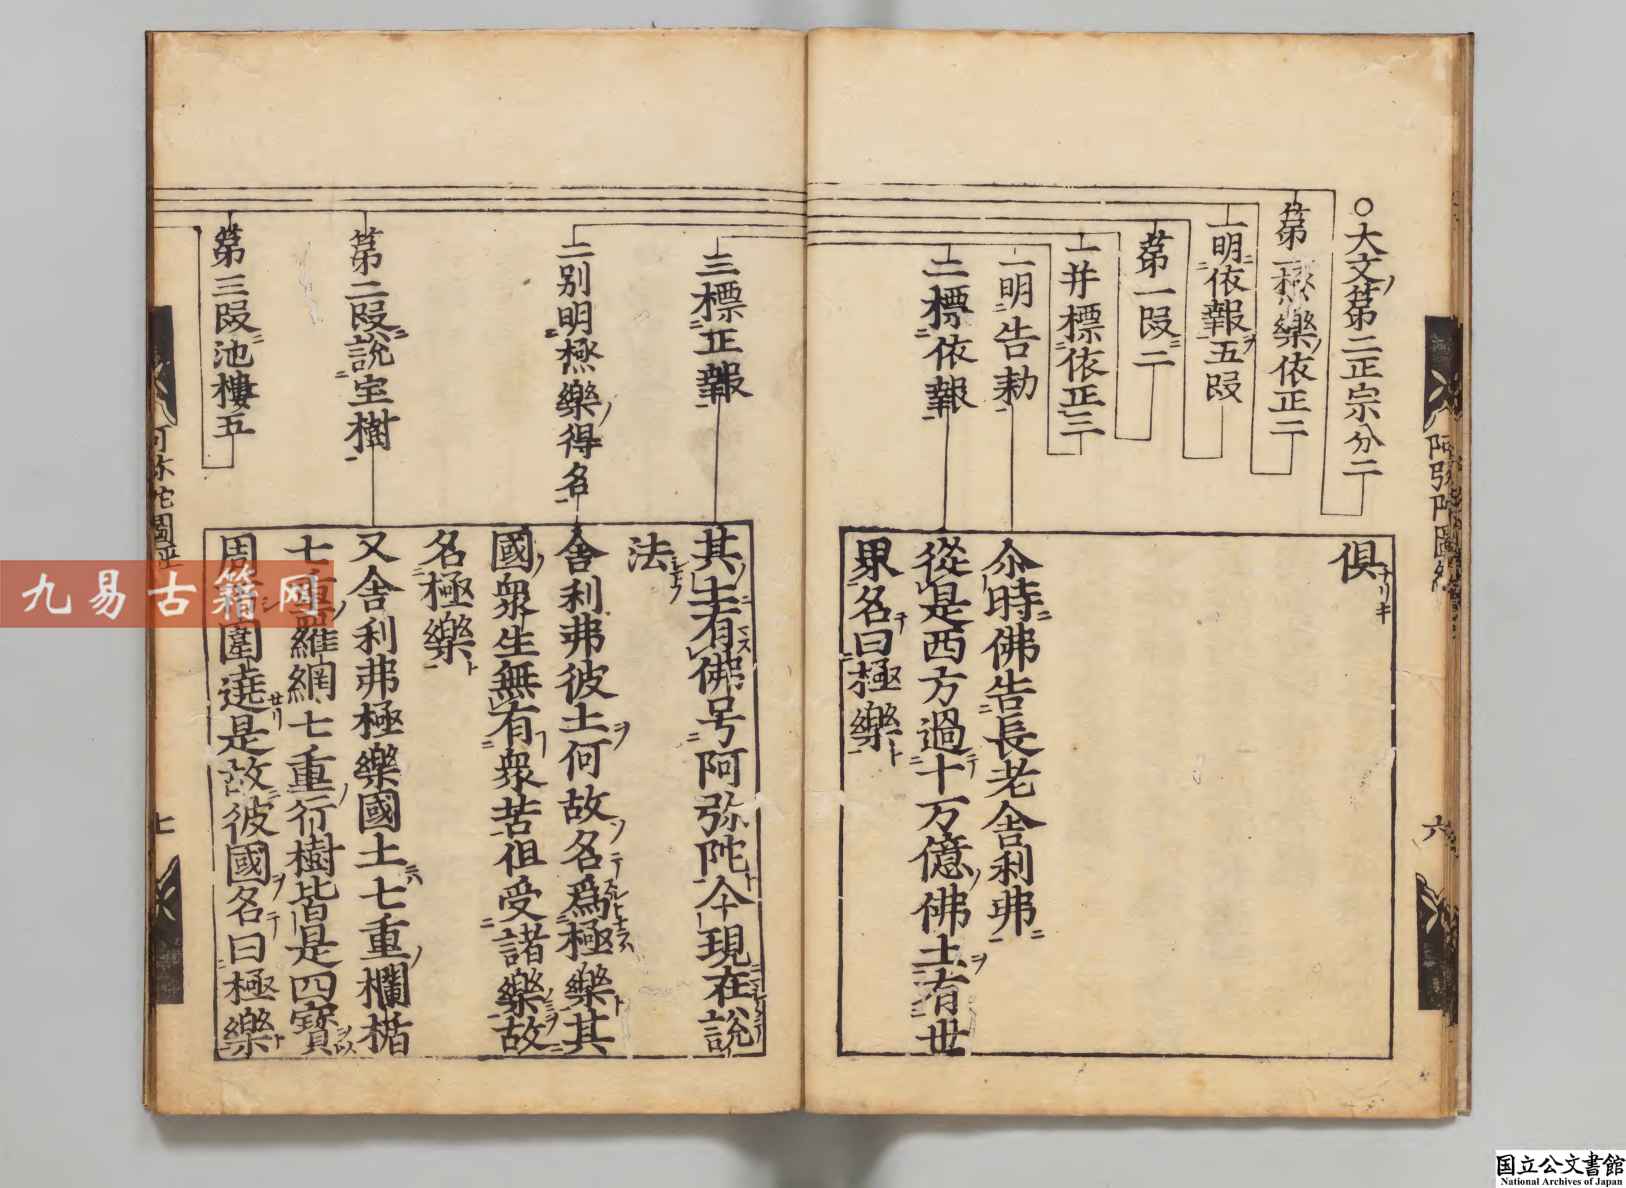 ○大文第二正宗分二
第一極樂依正二
一明依報五段
第一段二
一并標依正三
一明告勅
二標依報
俱
尒時佛告長老舍利弗
從是西方過十万億佛土有世
界名曰極樂
三標正報
二別明極樂得名
第二段說宝樹
第三段池樓五
其土有佛号阿弥陀今現在說
法
舍利弗彼土何故名爲極樂其
國衆生無有衆苦但受諸樂故
名極樂
又舍利弗極樂國土七重欄楯
七重羅網七重行樹皆是四寶
周圍遶是故彼國名曰極樂
六
七
九易古籍网
国立公文書館
National Archives of Japan